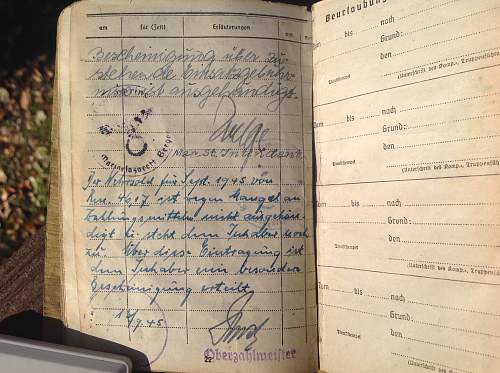 am für (Zeit) Erläuterungen am
Bescheinigung über zu-
stehende
ist ausgehändigt.
Marinelazarett Bergen
Mar. St. Int.
Der Wehrsold für Sept. 1945 von
ist wegen Mangel an
Zahlungsmitteln nicht ausgehän-
digt u. steht dem Inhaber noch
zu. Über diese Eintragung ist
dem Inhaber eine besondere
Bescheinigung erteilt
9.45.
Oberzahlmeister
22
Beurlaubung
vom bis nach
Grund:
Dienstsiegel den
(Unterschrift des Komp., Truppenführers
vom bis nach
Grund:
Dienstsiegel den
(Unterschrift des Komp., Truppenführers
vom bis nach
Grund:
Dienstsiegel den
(Unterschrift des Komp., Truppen
bis nach
Grund:
den
(Unterschrift des Komp.